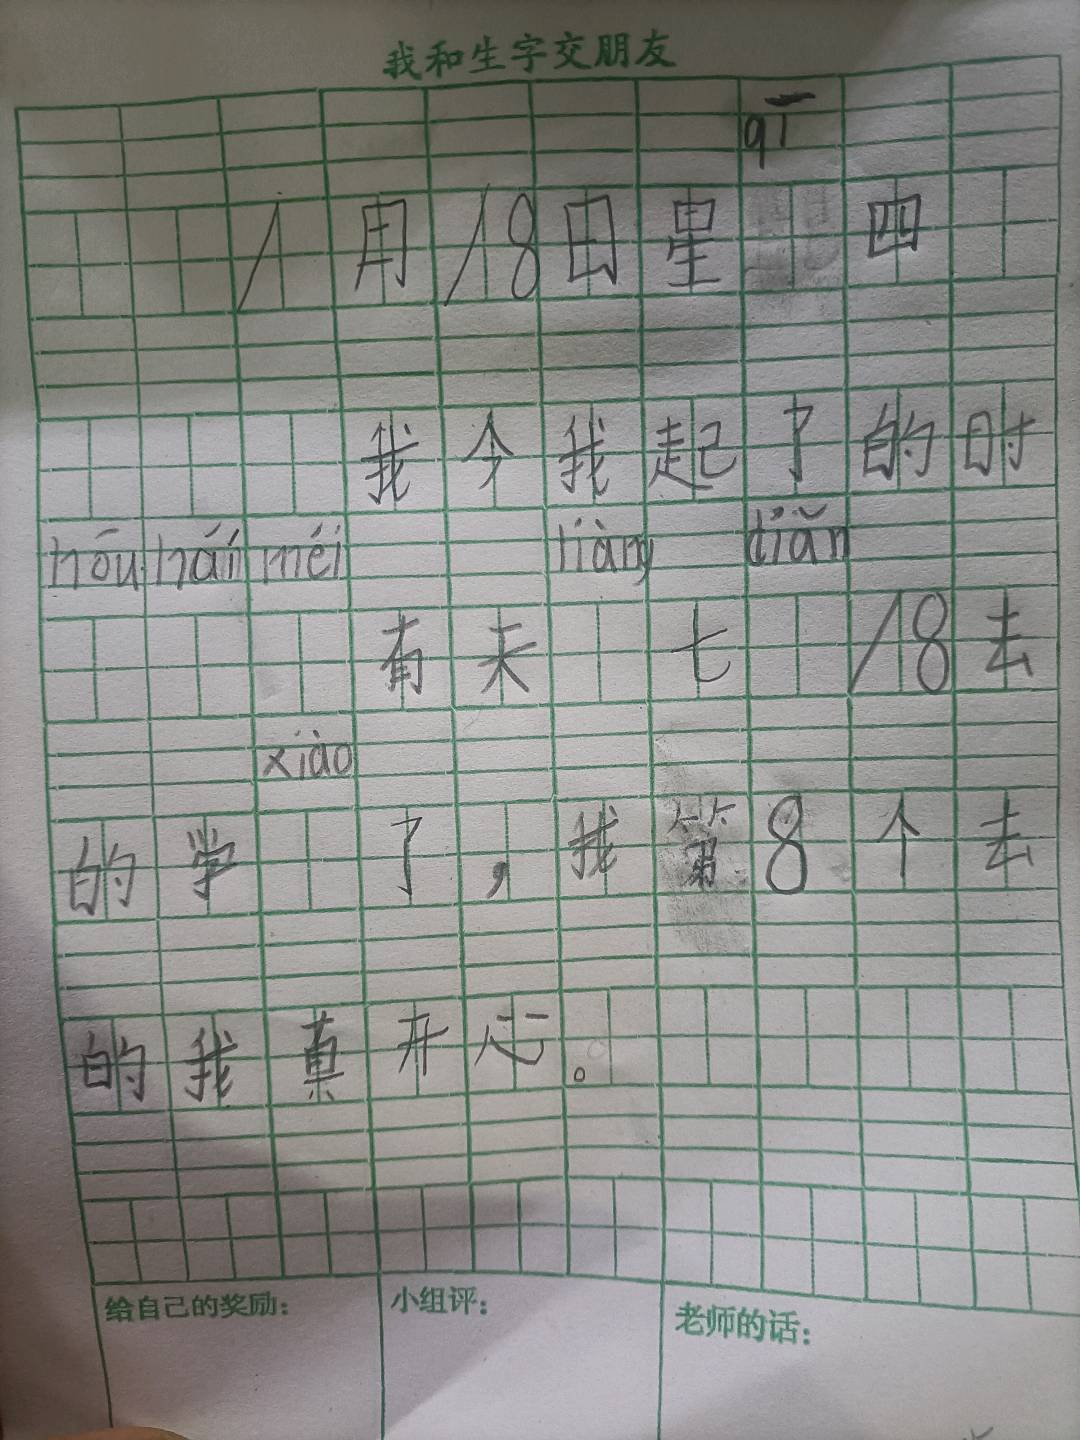 我和生字交朋友
qī
1用18日星 四
我今我起了的时
hōu hái méi liàng diǎn
有天 七 18去
xiào
的学 了，我第8个去
的我真开心。
给自己的奖励： 小组评： 老师的话：